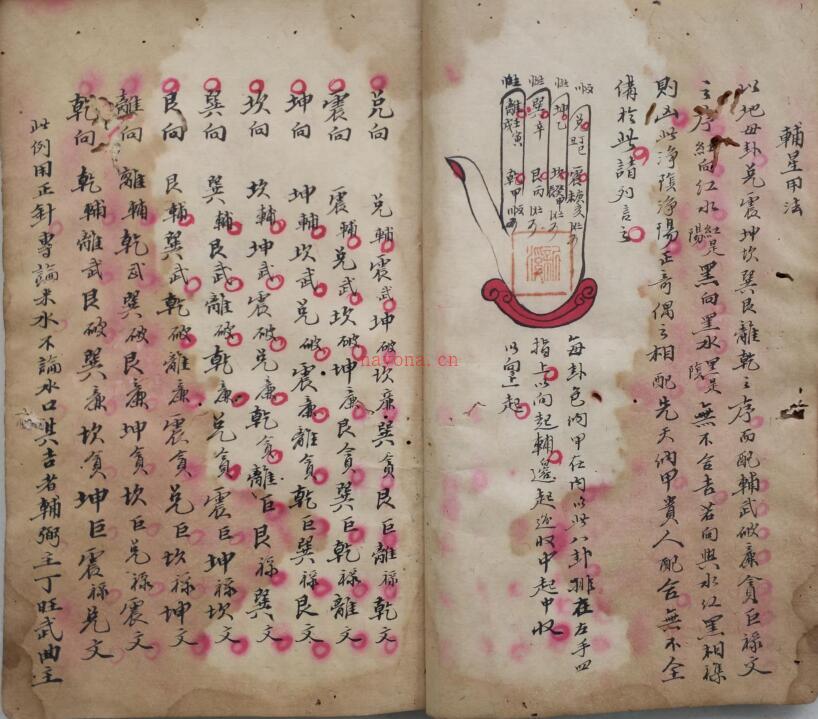 輔星用法
以地母卦兌震坤坎巽艮離乾之序而配輔武破廉貪巨祿文
之序紅向紅水紅是陽黑向黑水黑是陰無不合吉若向與水紅黑相襍
則凶此淨陰淨陽正奇偶之相配先天納甲貴人配合無不全
俻於此請列言之
順 兌丁巳丑 震庚亥未
坤乙 坎癸申辰
巽辛 艮丙
離壬寅戌 乾甲 順
每卦包納甲在內以此八卦排在左手四
指上以向起輔邊起邊收中起中收
以向上起
兌向 兌輔震武坤破坎廉巽貪艮巨離祿乾文
震向 震輔兌武坎破坤廉艮貪巽巨乾祿離文
坤向 坤輔坎武兌破震廉離貪乾巨巽祿艮文
坎向 坎輔坤武震破兌廉乾貪離巨艮祿巽文
巽向 巽輔艮武離破乾廉兌貪震巨坤祿坎文
艮向 艮輔巽武乾破離廉震貪兌巨坎祿坤文
離向 離輔乾武巽破艮廉坤貪坎巨兌祿震文
乾向 乾輔離武艮破巽廉坎貪坤巨震祿兌文
此例用正針專論來水不論水口其吉者輔弼主丁旺武曲主
nayona.cn